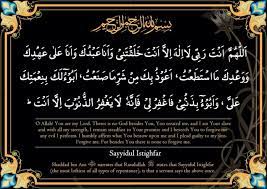 بِسْمِ اللهِ الرَّحْمٰنِ الرَّحِيْمِ
اَللّٰهُمَّ اَنْتَ رَبِّيْ لَا اِلٰهَ اِلَّا اَنْتَ خَلَقْتَنِيْ وَاَنَا عَبْدُكَ وَاَنَا عَلٰى عَهْدِكَ
وَوَعْدِكَ مَا اسْتَطَعْتُ، اَعُوْذُ بِكَ مِنْ شَرِّ مَا صَنَعْتُ، اَبُوْءُ لَكَ بِنِعْمَتِكَ
عَلَيَّ، وَاَبُوْءُ بِذَنْبِيْ فَاغْفِرْ لِيْ فَاِنَّهُ لَا يَغْفِرُ الذُّنُوْبَ اِلَّا اَنْتَ
O Allah! You are my Lord. There is no God besides You, You created me, and I am Your slave
and with all my strength, I remain steadfast in Your promise and I beseech You to forgive
my evil I perform. I humbly affirm
forgive me. For besides You, there is none who can forgive
Sayyidul Istighfar
Shaddad ben Aus narrates that Rasulallah states that Sayyidul Istighfar
(the most loftiest of all types of repentance), is that a servant says the above once.